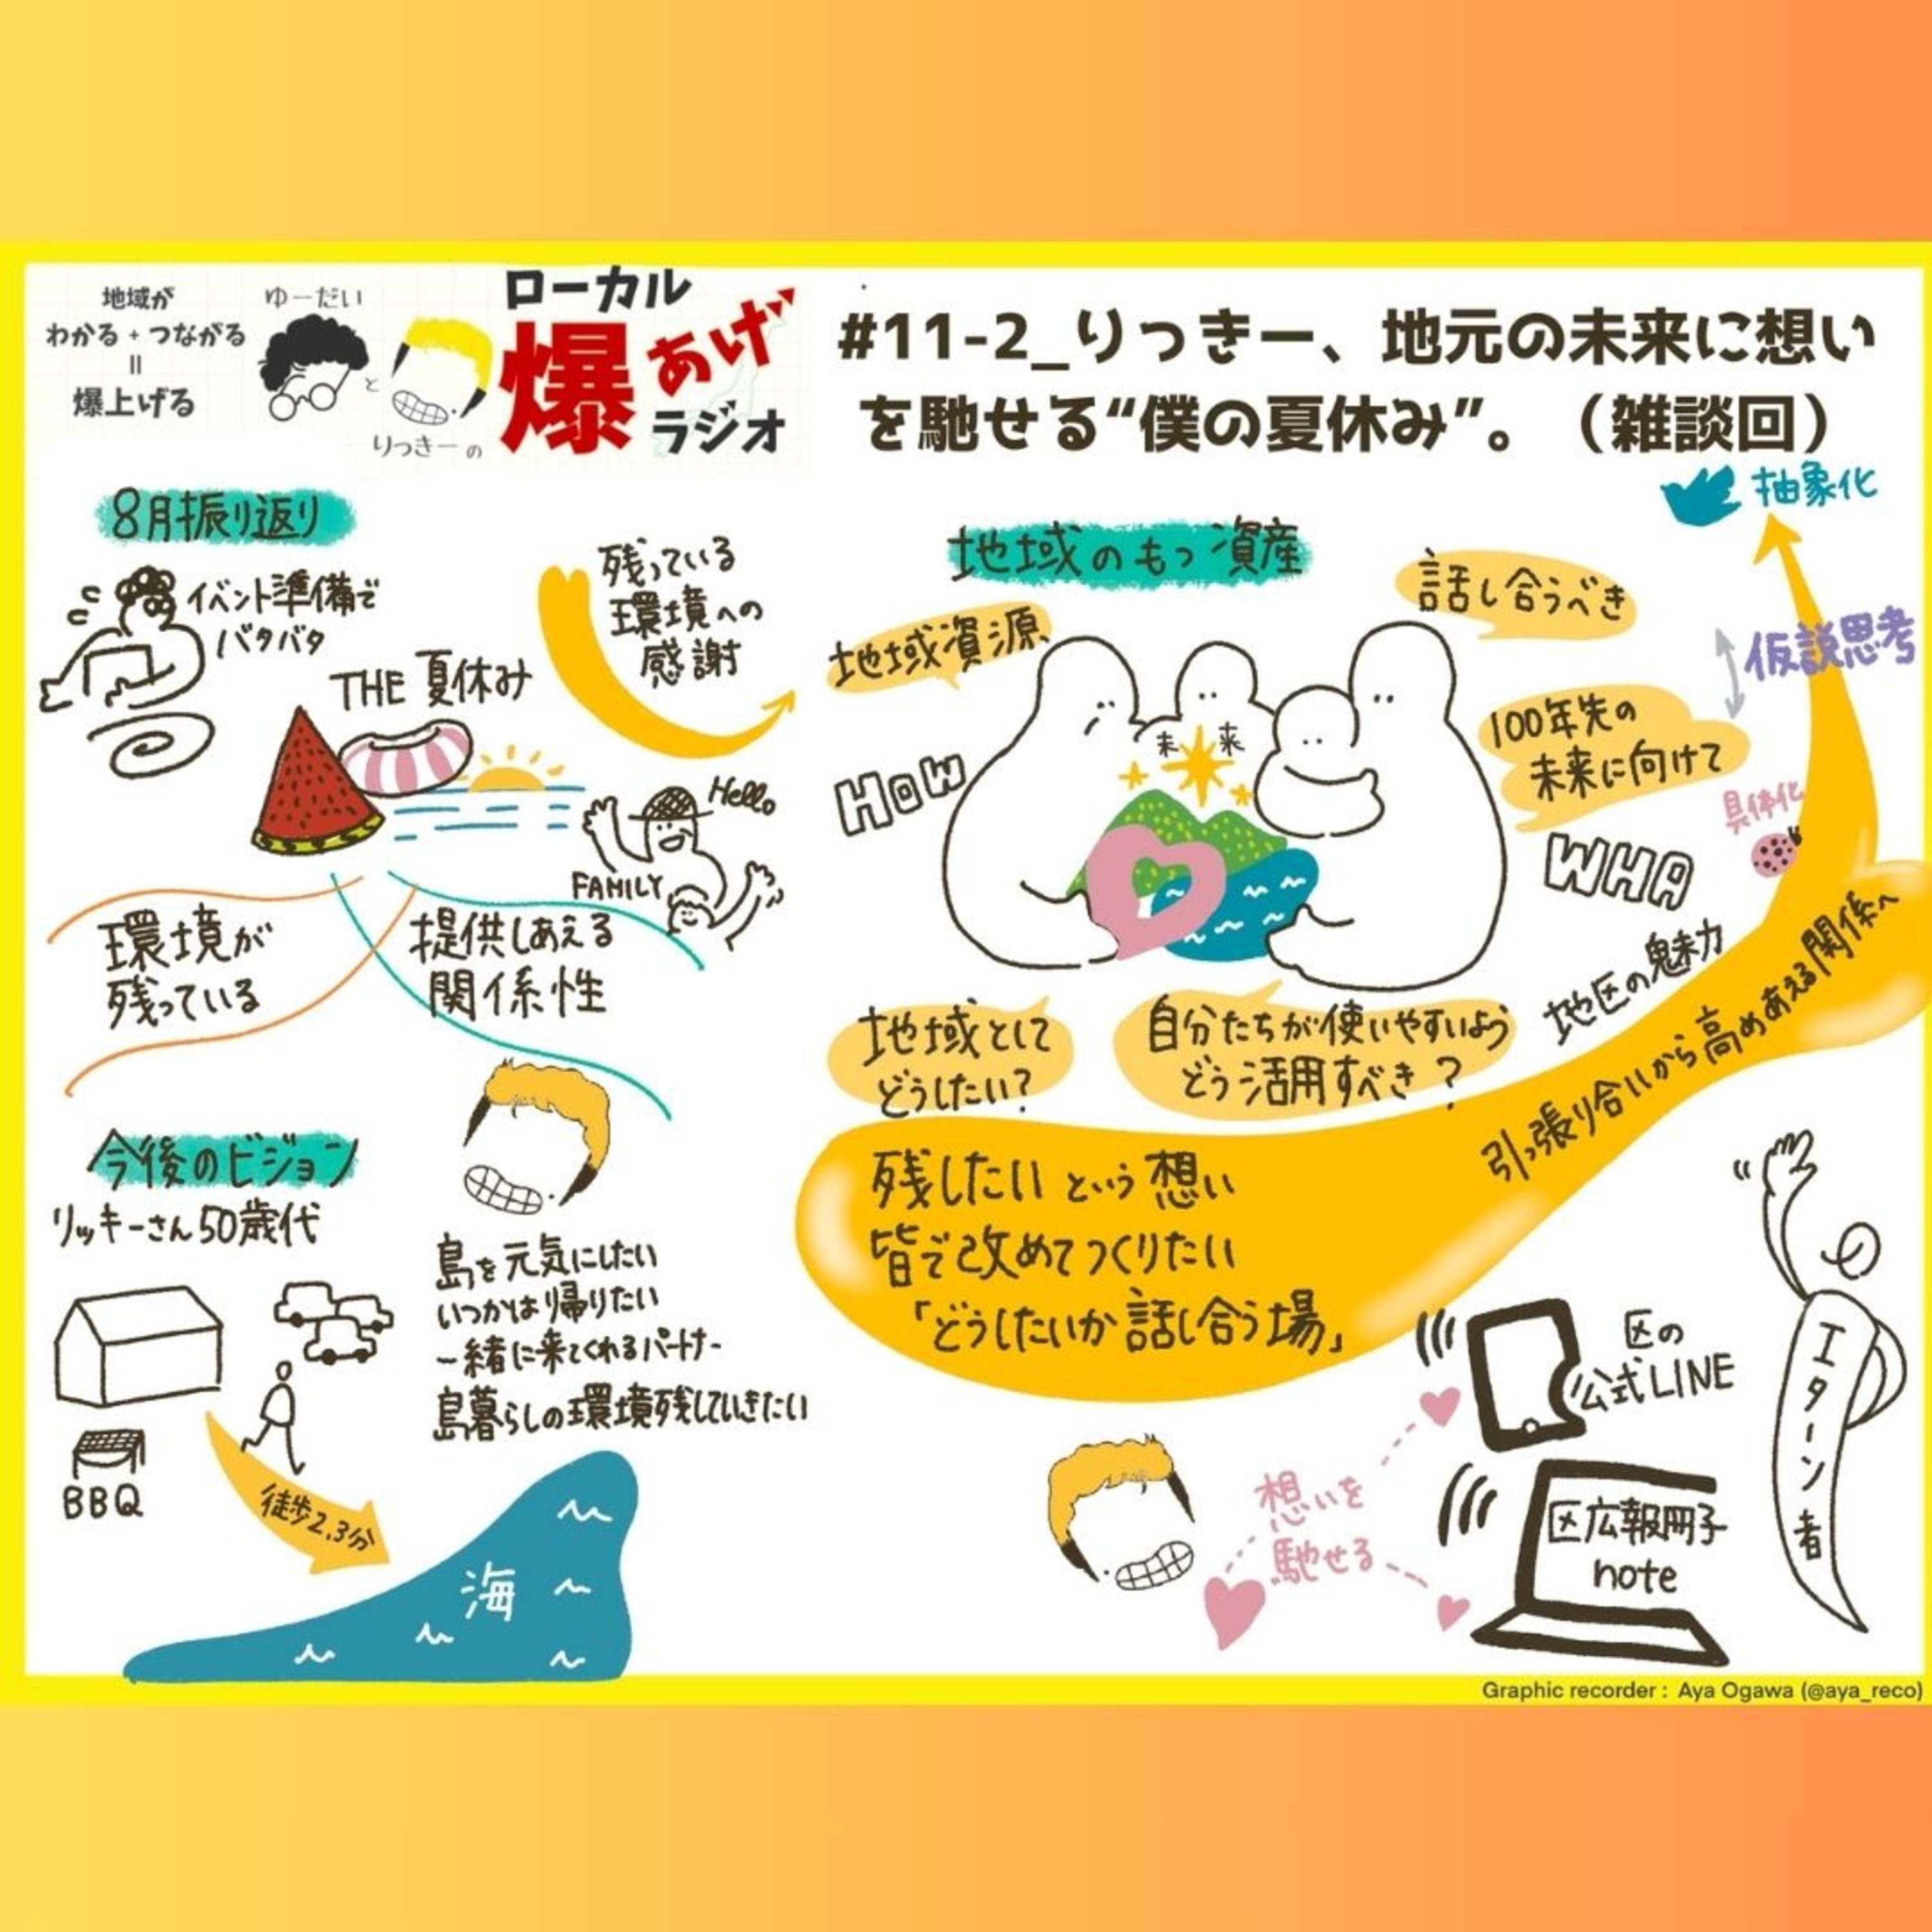 地域が
わかる + つながる
=
爆上げる
ゆーだい
と
りっきー の
ローカル
爆あげ
ラジオ
#11-2_りっきー、地元の未来に想い
を馳せる“僕の夏休み”。（雑談回）
8月振り返り
イベント準備で
バタバタ
THE 夏休み
残っている
環境への
感謝
Hello
FAMILY
環境が
残っている
提供しあえる
関係性
今後のビジョン
リッキーさん50歳代
BBQ
徒歩2,3分
海
島を元気にしたい
いつかは帰りたい
一緒に来てくれるパートナー
島暮らしの環境残していきたい
地域のもつ資産
地域資源
話し合うべき
未来
100年先の
未来に向けて
HOW
WHA
抽象化
仮説思考
具体化
地区の魅力
地域として
どうしたい?
自分たちが使いやすいよう
どう活用すべき?
引っ張り合いから高めあえる関係へ
残したい という 想い
皆で改めてつくりたい
「どうしたいか話し合う場」
想いを
馳せる
区の
公式LINE
区広報冊子
note
Iターン者
Graphic recorder : Aya Ogawa (@aya_reco)